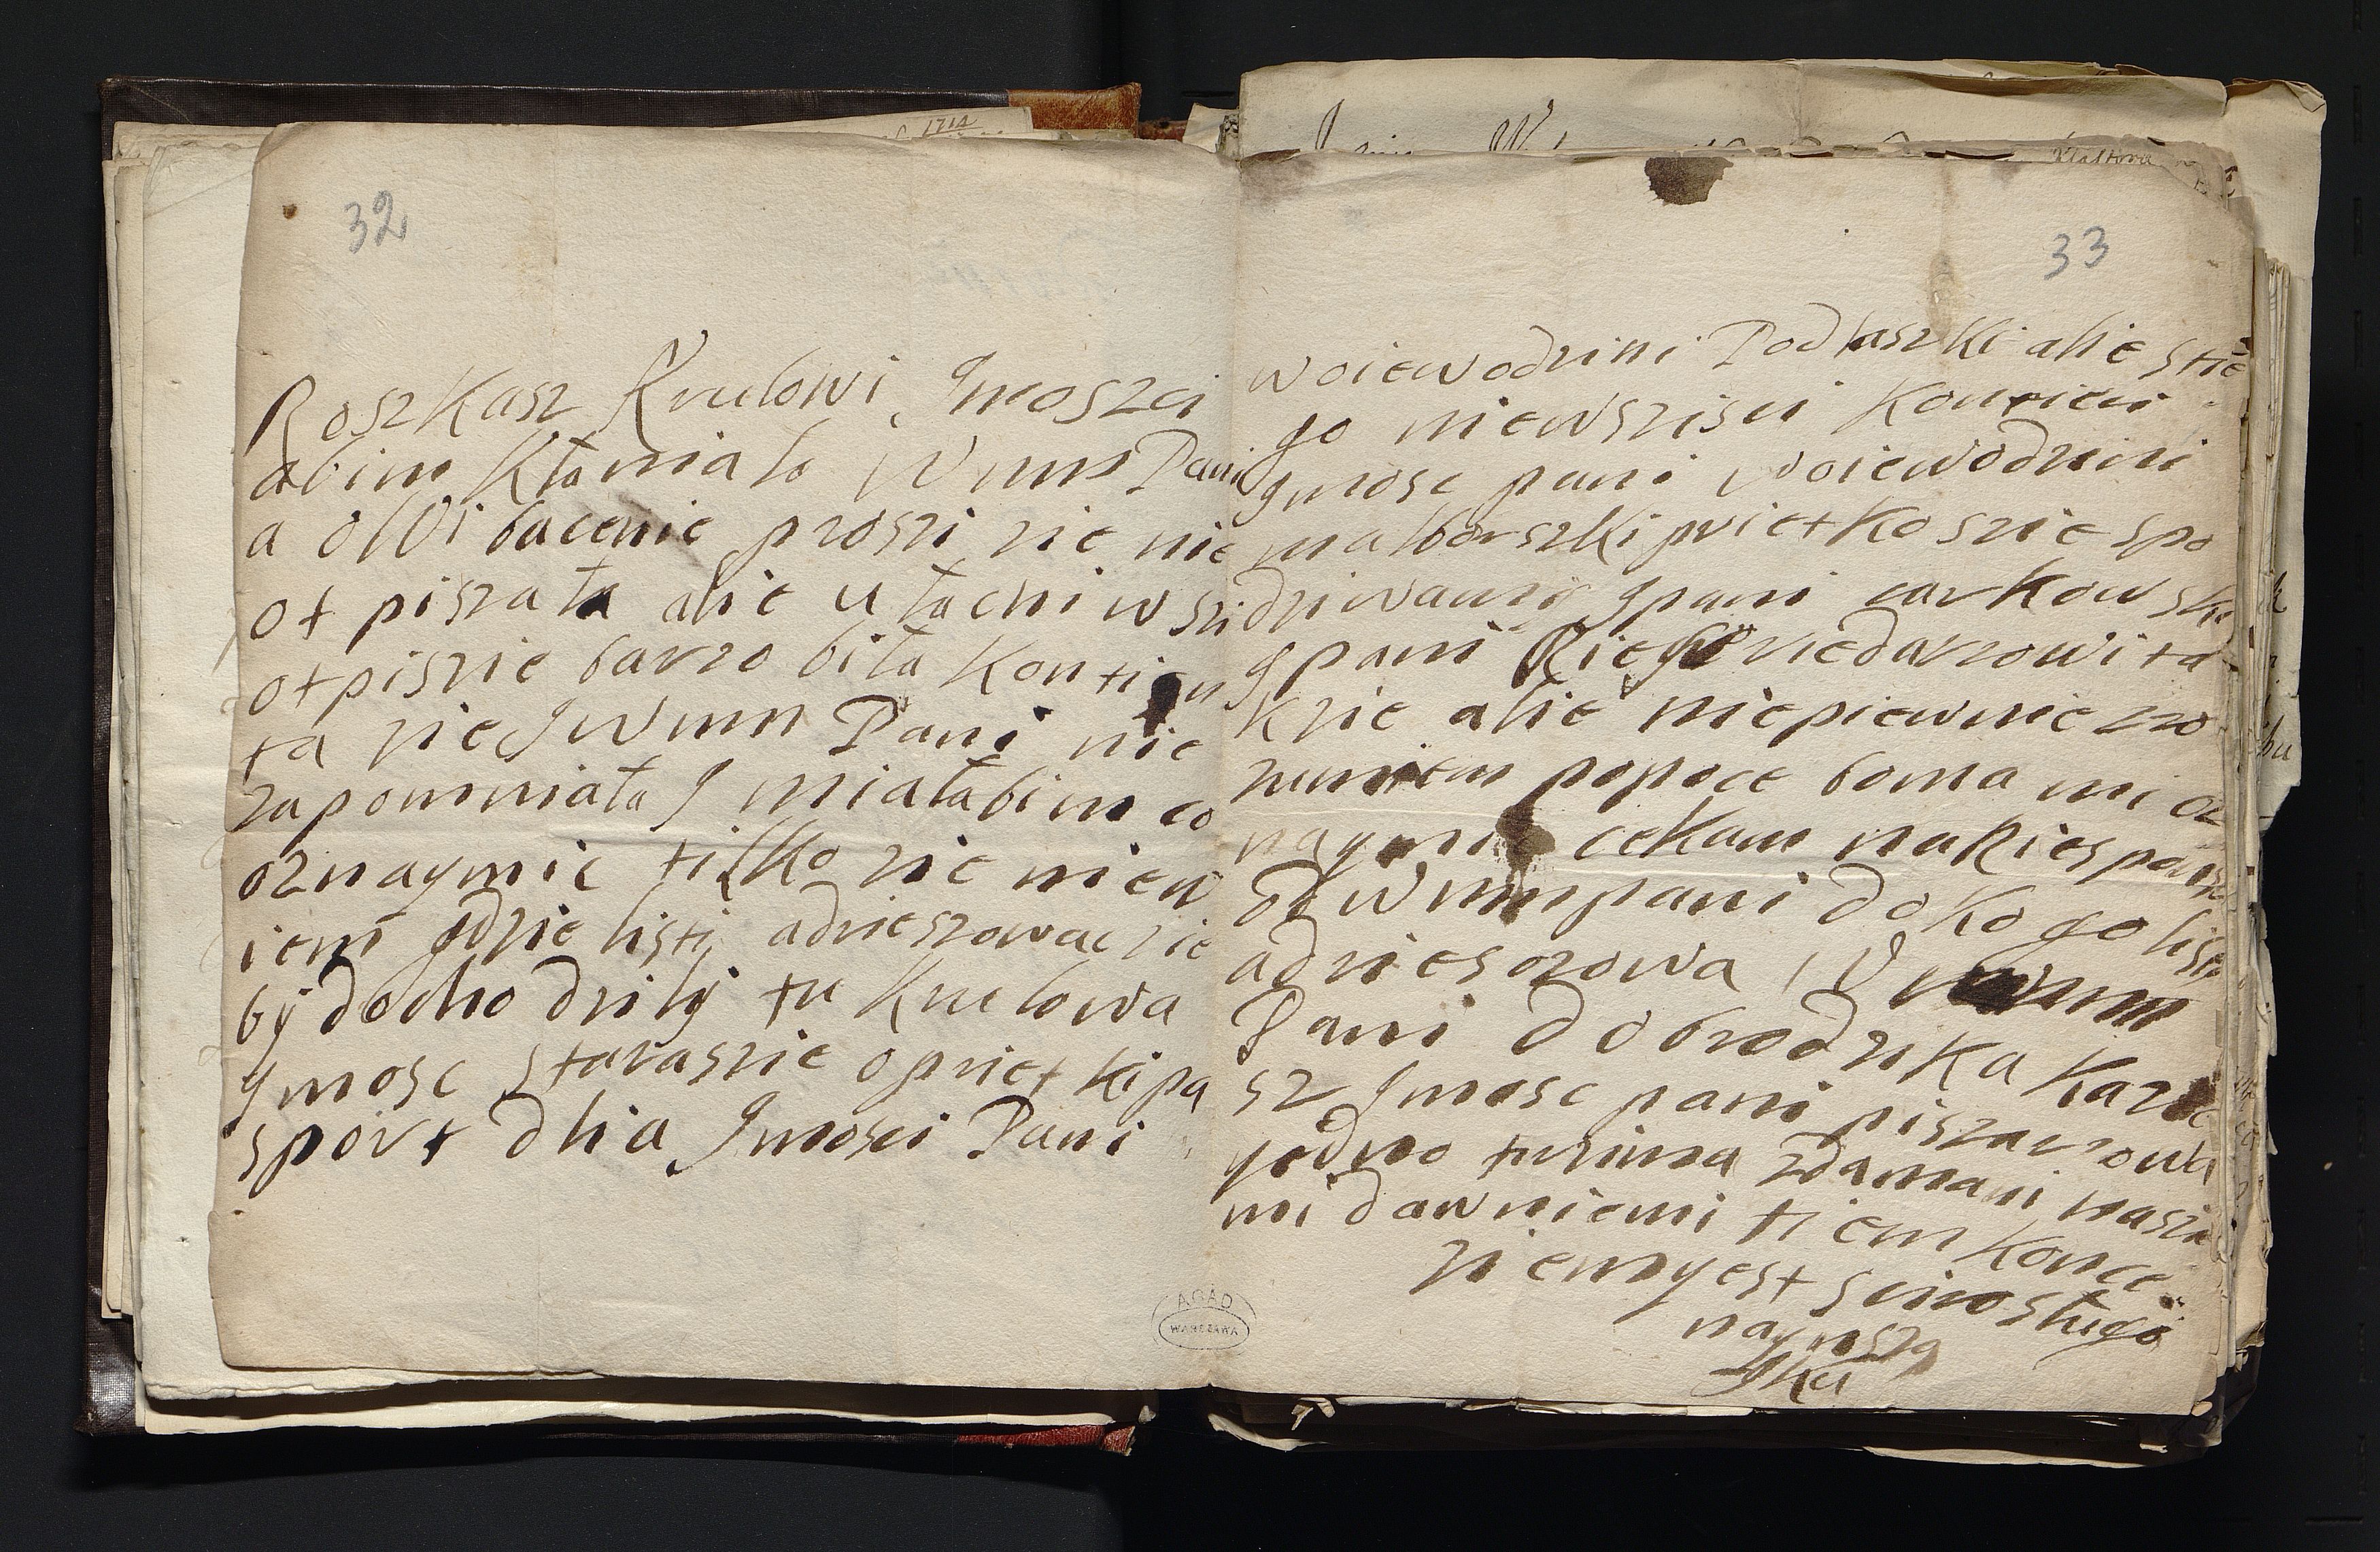 32
Roszkasz Krulowi Jmoszci
abim Kłaniała Wmm Pani
a o Wibacenie proszi zie nie
ot piszała alie u łacni w szi
ot piszie barzo biła Kontien
ta zie J Wmm Pani nie
zapomniała J miałabim co
oznaymic tilko zie niew
iem gdzie listi adrieszowac zie
by dochodzily tu Krulowa
Jmosc staraszie opriet ki pa
sport dlia Jmosci Pani
33
woiewodzini Podlaszki alie stie
go niewszisci
Jmosc pani woiewodzini
malborszki priet ko szie spo
dziwamy J pani carkowska
J pani zie barzo wita
krie alie niepiewnie zro
popoce boma mi oz
naymic cekam
od Wmm pani do kogo listi
adrieszowa W
Pani dobrodzika Kaze
sz Jmosc pani
godno zdamani nasza
mi dawniemi tiem Konce
ziem yest scirosługo
naynisza
JKu
AGAD
WARSZAWA
1714